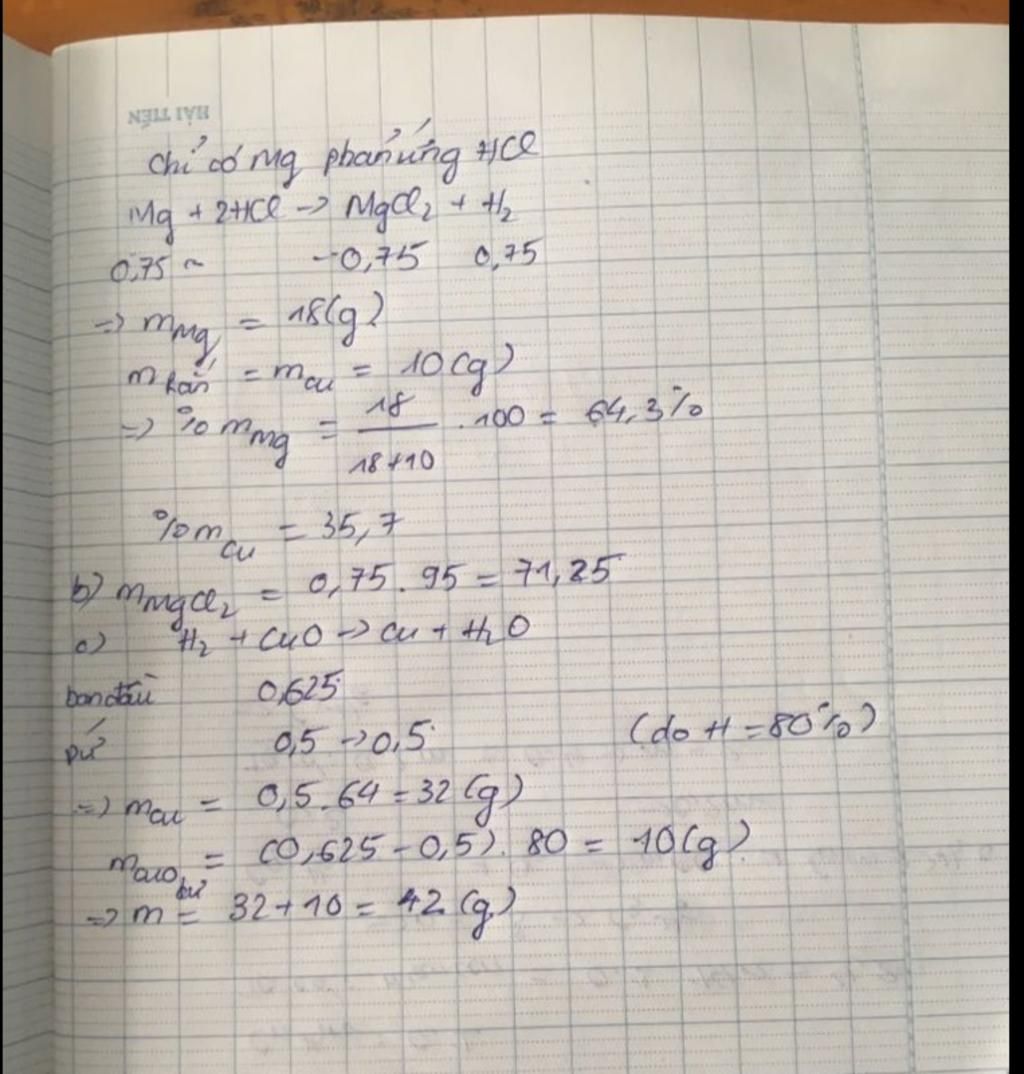 HẢI TIẾN
Chỉ có Mg phản ứng HCl
Mg + 2HCl -> MgCl2 + H2
0,75 ~ -0,75 0,75
=> mMg = 18(g)
m rắn = mCu = 10(g)
=> % mMg = 18/18+10 . 100 = 64,3%
%mCu = 35,7
b) mMgCl2 = 0,75 . 95 = 71,25
c) H2 + CuO -> Cu + H2O
ban đầu 0,625
pứ 0,5 -> 0,5 (do H = 80%)
=> mCu = 0,5 . 64 = 32 (g)
mCuO dư = (0,625 - 0,5) . 80 = 10(g)
=> m = 32 + 10 = 42 (g)